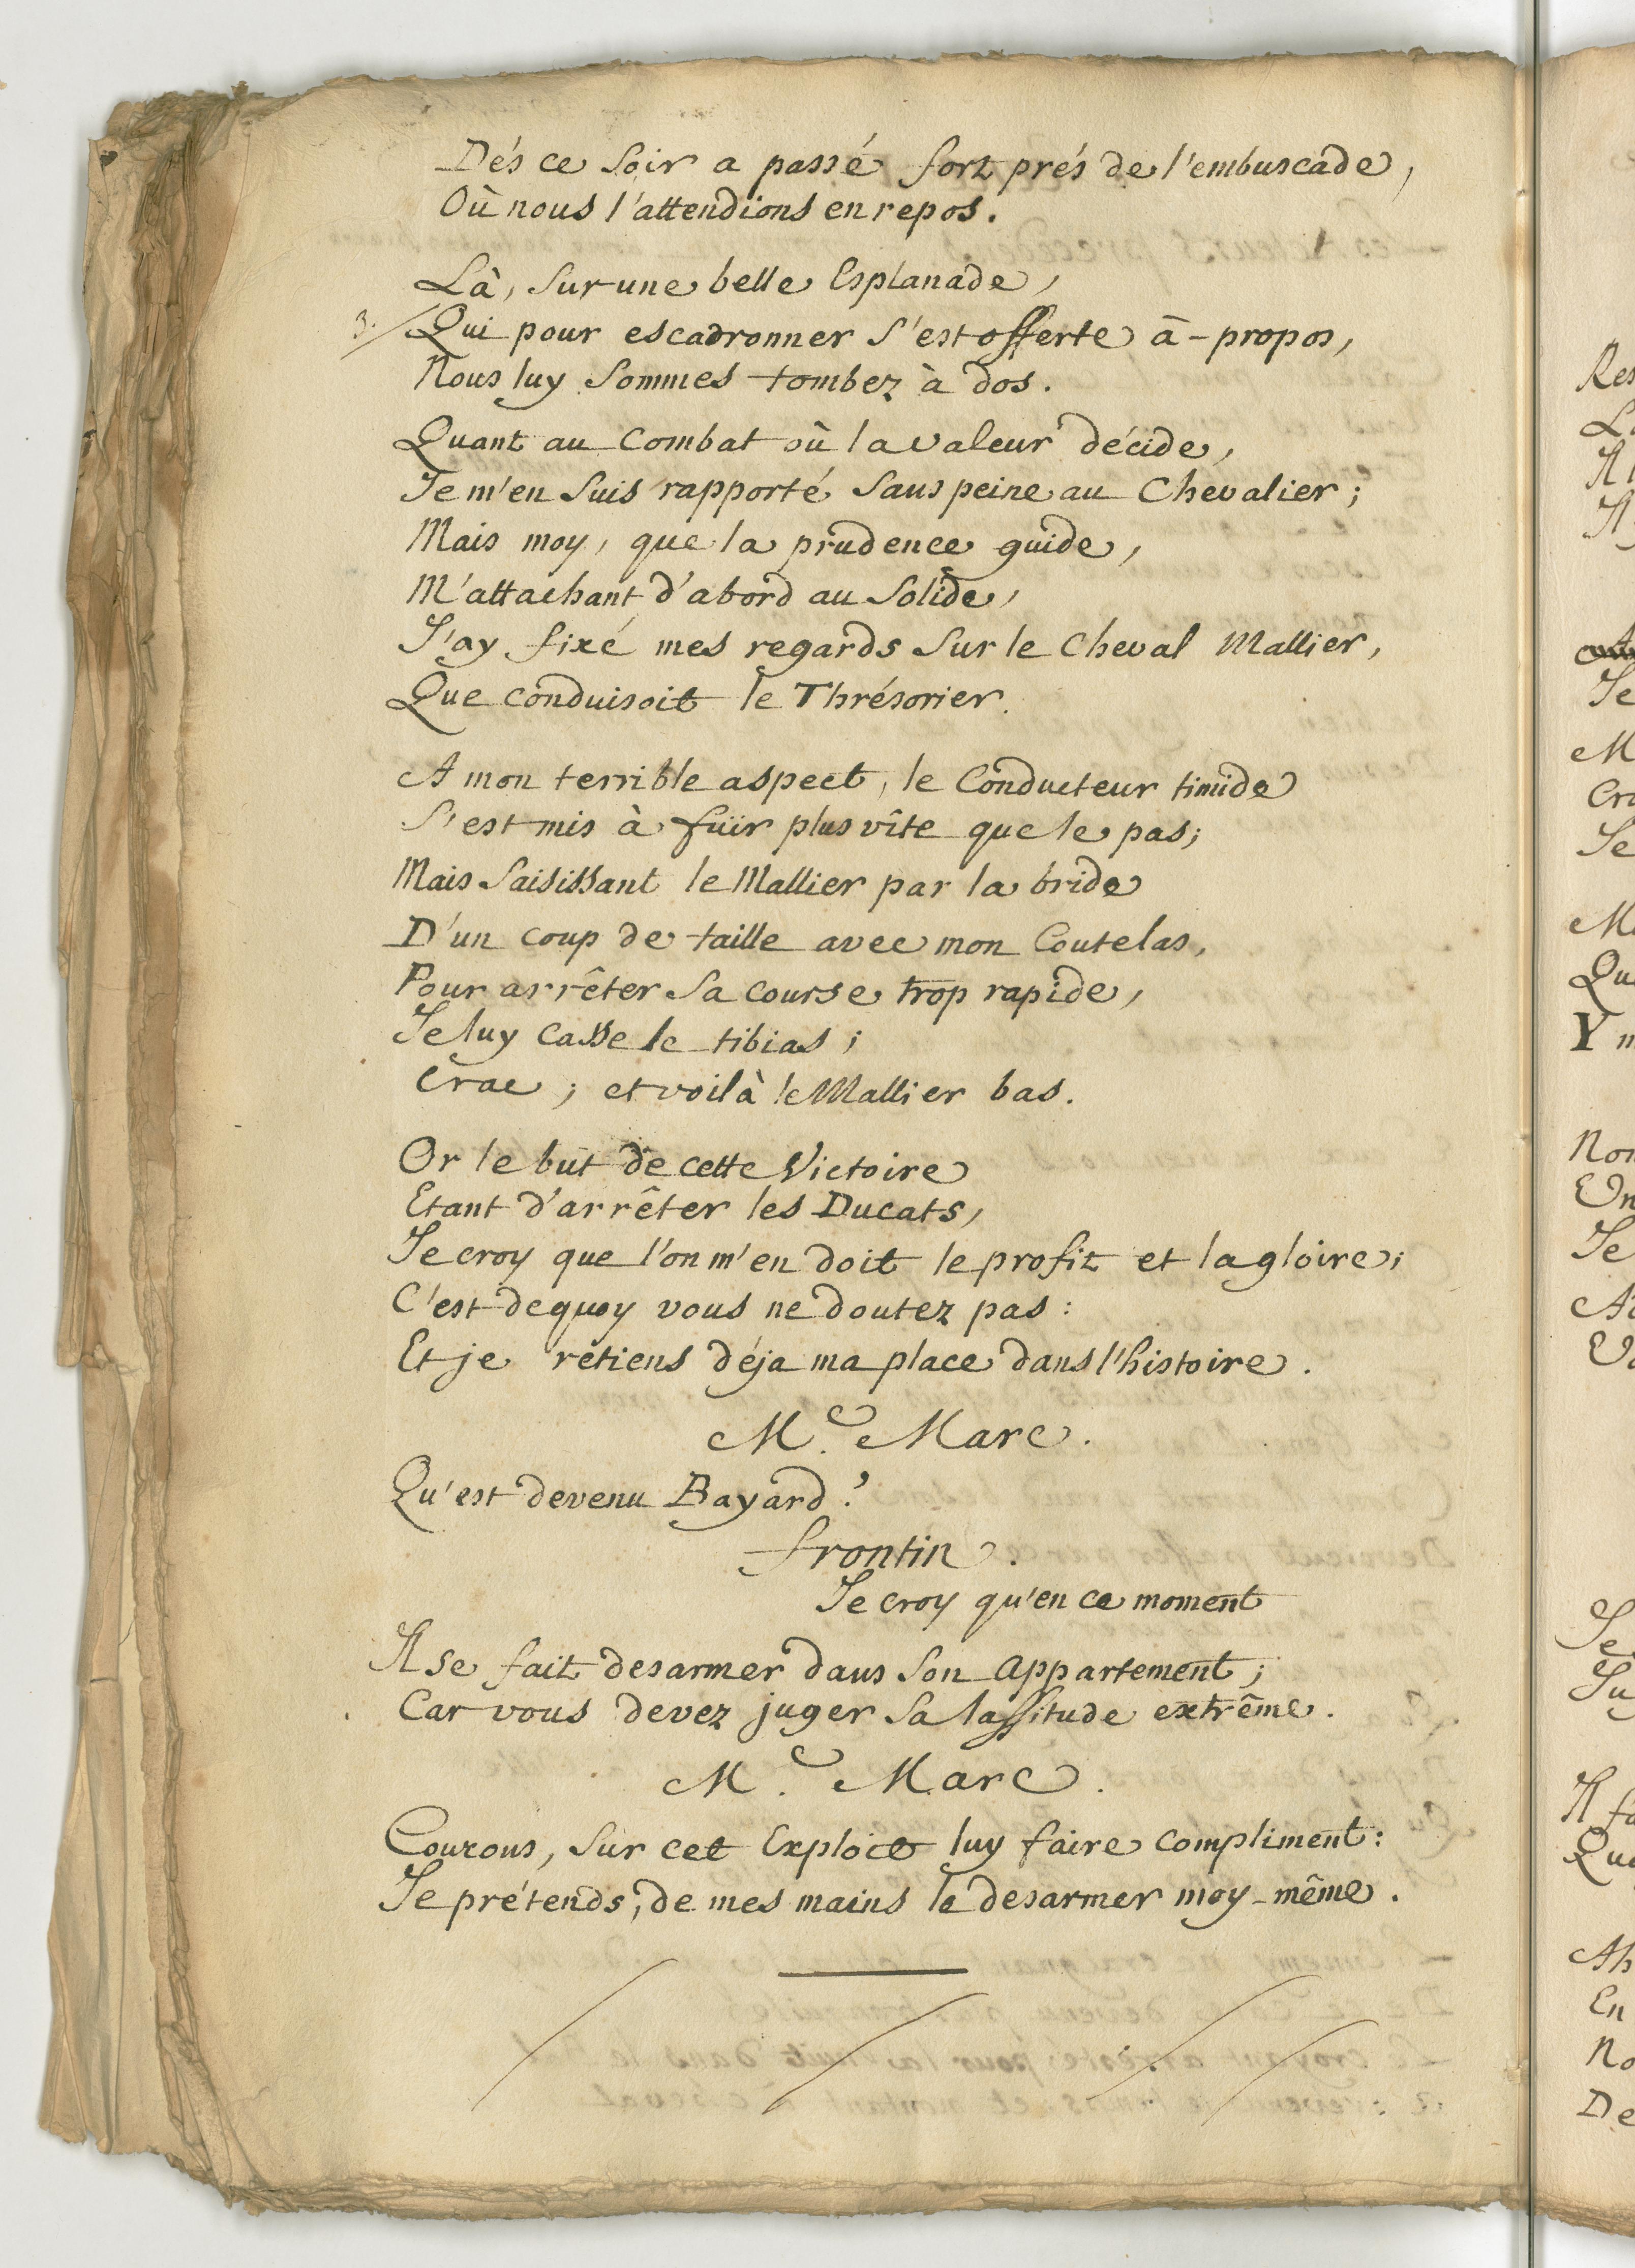 Dés ce soir a passé fort prés de l'embuscade,
Où nous l'attendions en repos.
Là, sur une belle Esplanade,
3. Qui pour escadronner s'est offerte à-propos,
Nous luy sommes tombez à dos.
Quant au Combat où la valeur décide,
Je m'en suis rapporté sans peine au Chevalier;
Mais moy, que la prudence guide,
M'attachant d'abord au solide,
J'ay fixé mes regards sur le Cheval Mallier,
Que conduisoit le Thrésorier.
A mon terrible aspect, le Conducteur timide
S'est mis à fuïr plus vîte que le pas;
Mais saisissant le Mallier par la bride
D'un coup de taille avec mon Coutelas,
Pour arrêter sa course trop rapide,
Je luy casse le tibias;
Crac; et voilà le Mallier bas.
Or le but de cette Victoire
Etant d'arrêter les Ducats,
Je croy que l'on m'en doit le profit et la gloire;
C'est dequoy vous ne doutez pas:
Et je retiens déja ma place dans l'histoire.
M.e Marc.
Qu'est devenu Bayard?
Frontin.
Je croy qu'en ce moment
Il se fait desarmer dans son Appartement;
Car vous devez juger sa lassitude extrême.
M.e Marc.
Courons, sur cet Exploit luy faire compliment:
Je prétends, de mes mains le desarmer moy-même.
Res
M
Je
Qu
Y
Non
Je
Je
Ah
En
No
De